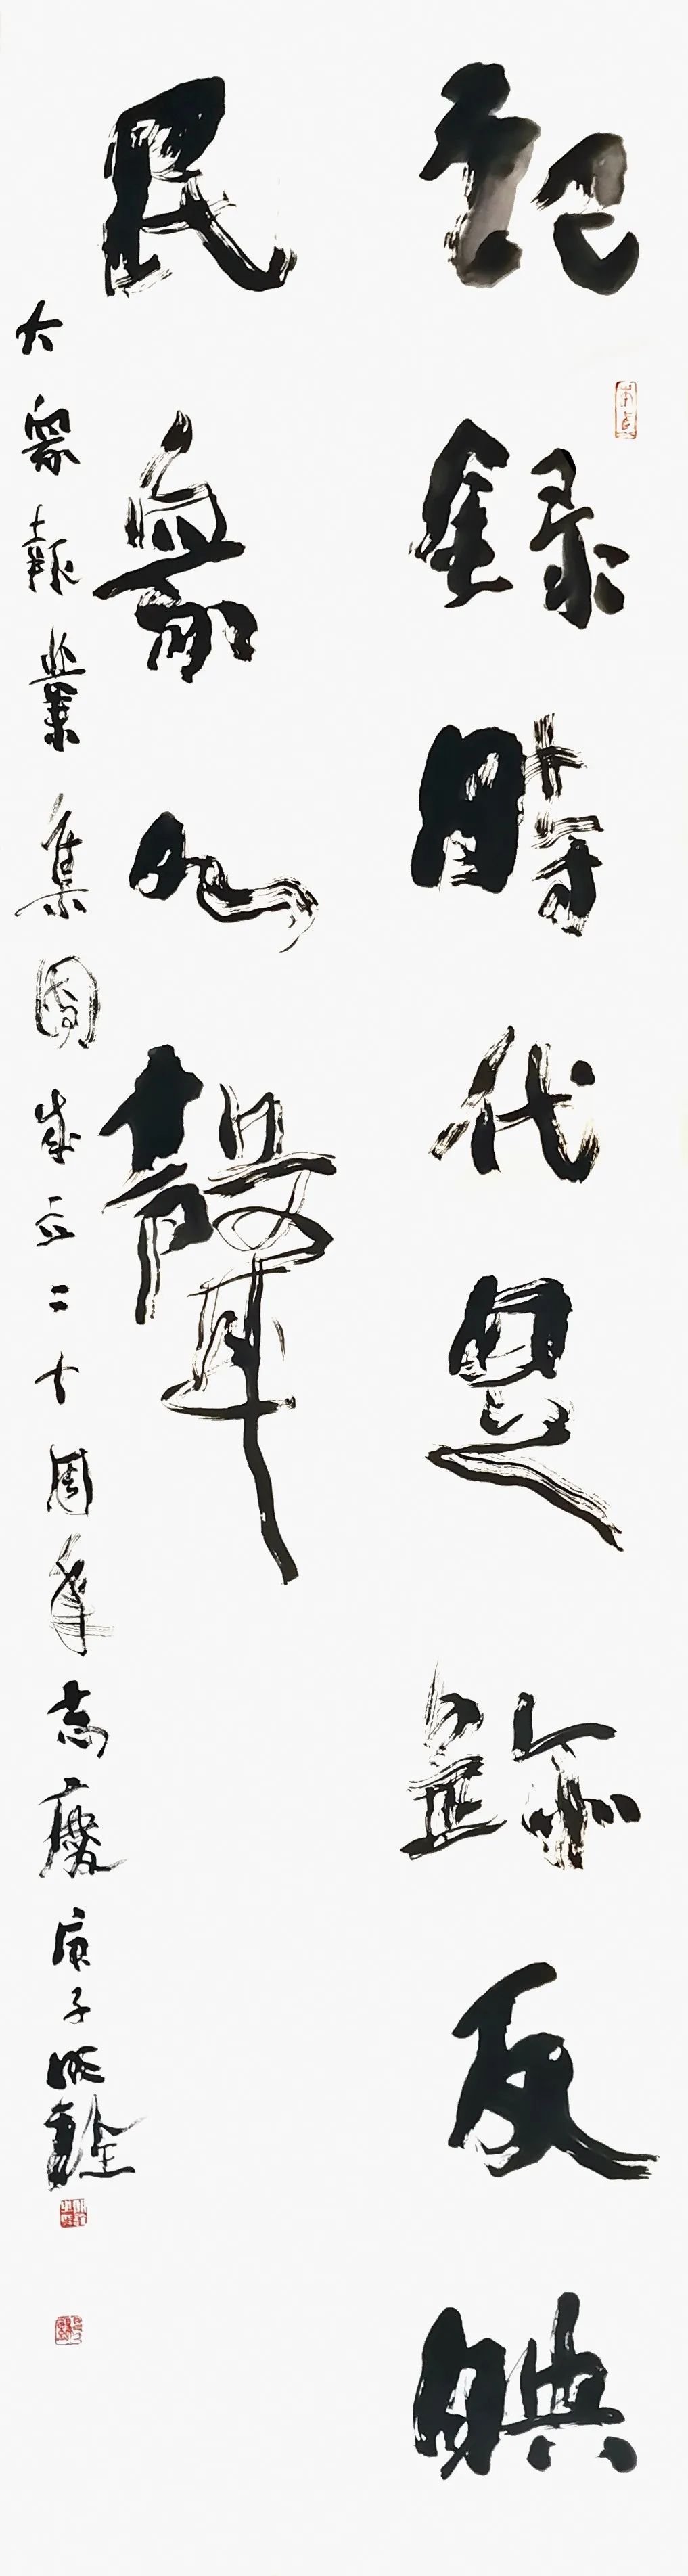 記錄時代足跡反映
民眾心聲
大眾報業集團成立二十周年志慶庚子明詮